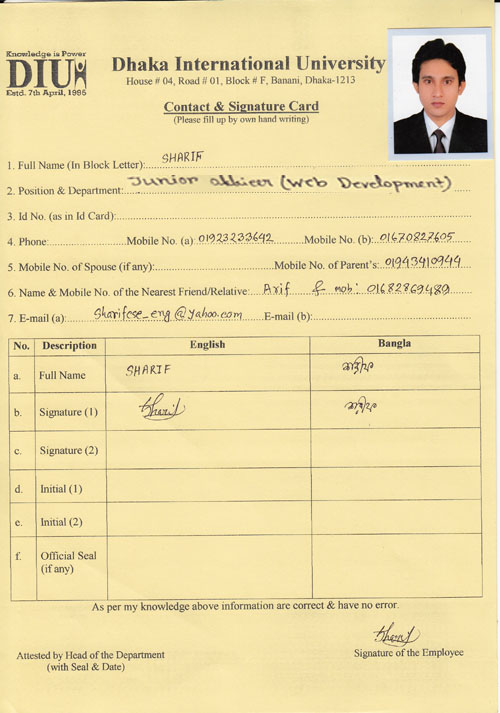 Knowledge is Power
DIU
Estd. 7th April, 1995
Dhaka International University
House # 04, Road # 01, Block # F, Banani, Dhaka-1213
Contact & Signature Card
(Please fill up by own hand writing)
1. Full Name (In Block Letter): SHARIF
2. Position & Department: Junior officer (Web Development)
3. Id No. (as in Id Card):
4. Phone: Mobile No. (a) 01923233642 Mobile No. (b): 01670827605
5. Mobile No. of Spouse (if any): Mobile No. of Parent's: 01943410944
6. Name & Mobile No. of the Nearest Friend/Relative: Arif & mob: 01682869489
7. E-mail (a): Sharifcse_eng@Yahoo.com E-mail (b):
No. Description English Bangla
a. Full Name SHARIF শরীফ
b. Signature (1) Sharif শরীফ
c. Signature (2)
d. Initial (1)
e. Initial (2)
f. Official Seal
(if any)
As per my knowledge above information are correct & have no error.
Sharif
Attested by Head of the Department Signature of the Employee
(with Seal & Date)